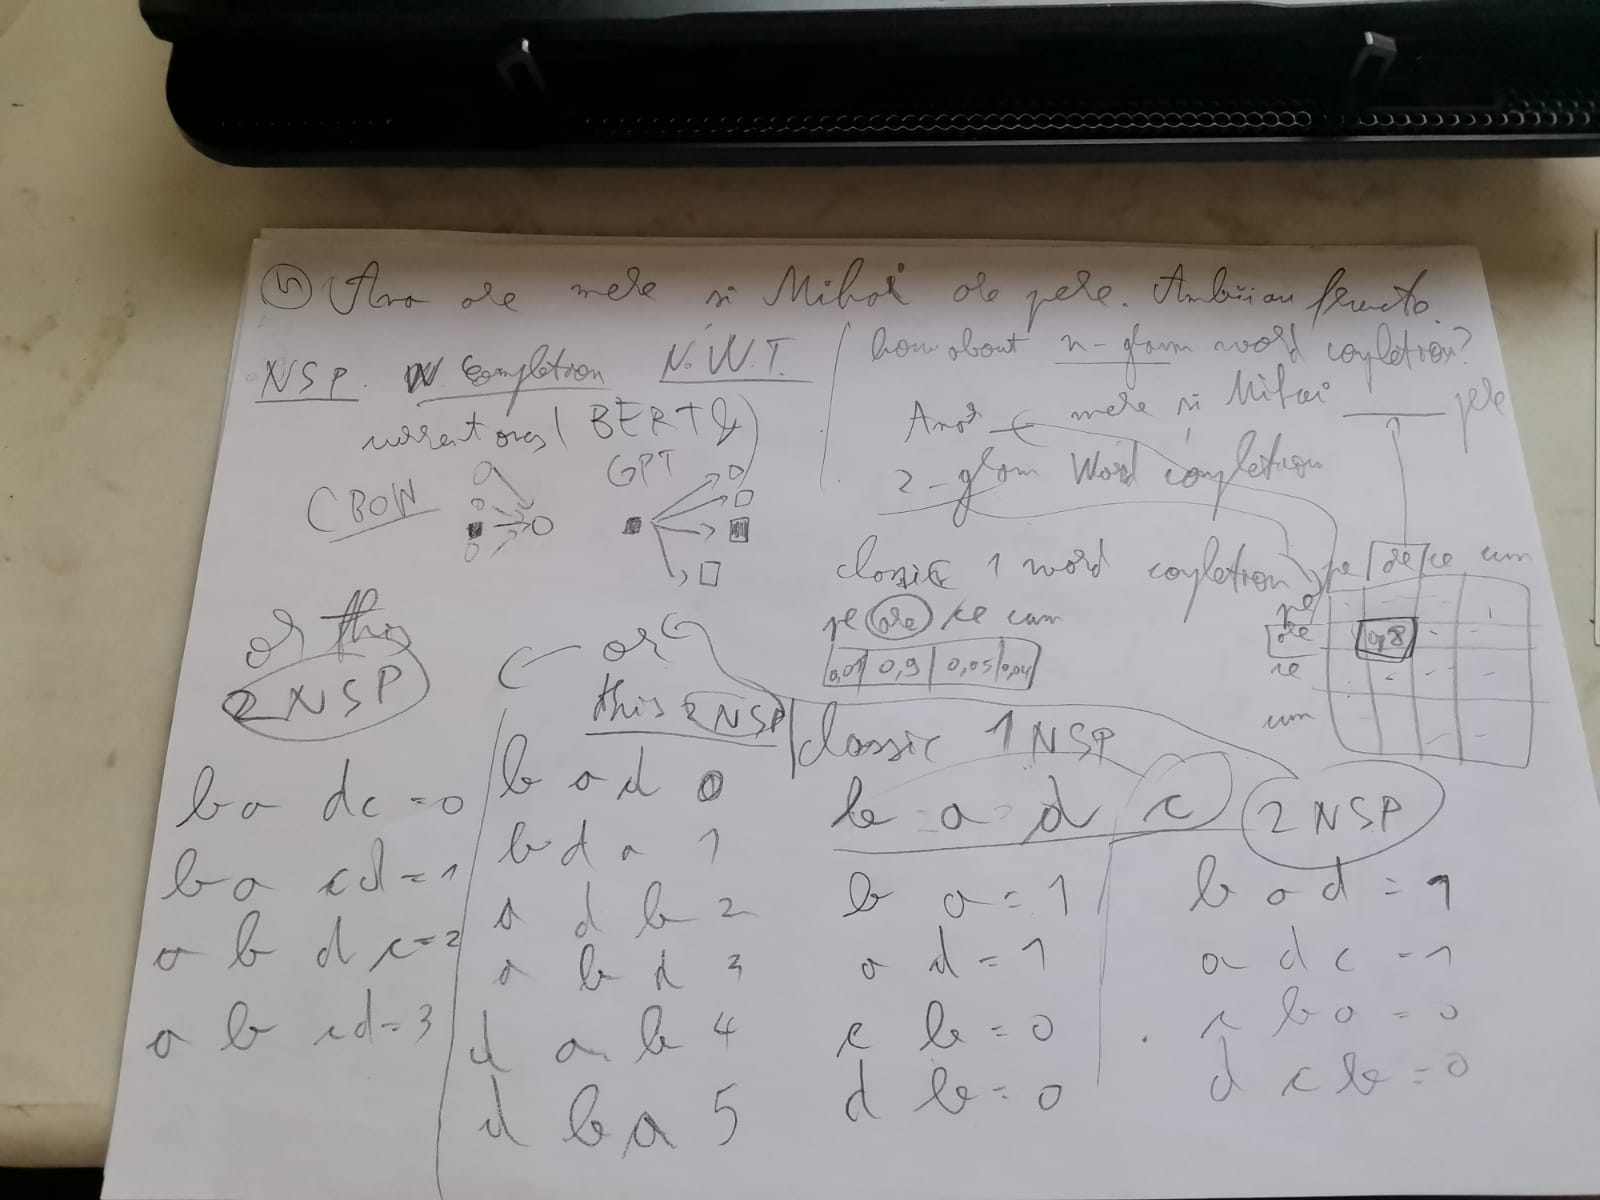 Ana are mere si Mihai are pere. Ambii au fructe.
NSP. W Completion N.W.T.
current ones (BERT &
GPT)
CBOW
how about n-gram word completion?
Ana mere si Mihai ____ pere
2-gram Word completion
classic 1 word completion
pe are ce cum
0,01 0,9 0,05 0,04
pe are ce cum
pe
are 0,8
ce
cum
or this
2NSP
ba dc = 0
ba cd = 1
a b d c = 2
a b cd = 3
or
this 2NSP
b a d 0
b d a 1
a d b 2
a b d 3
d a b 4
d b a 5
classic 1NSP
b a d c
b a = 1
a d = 1
c b = 0
d b = 0
2NSP
b a d = 1
a d c = 1
c b a = 0
d c b = 0